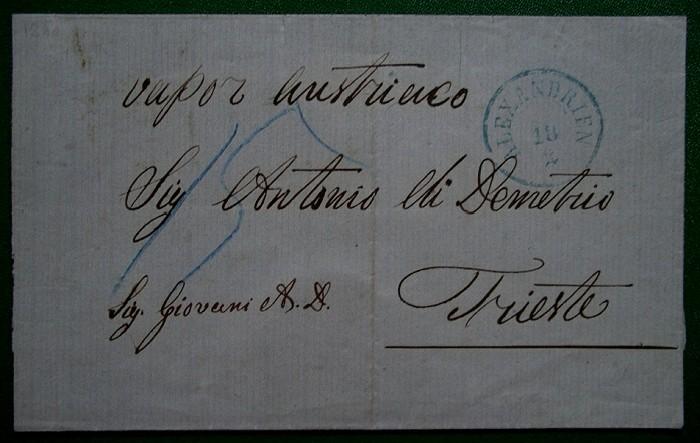 vapor austriaco
ALEXANDRIEN
18
4
15
Sig Antonio di Demetrio
Sig. Giovani A. D.
Trieste